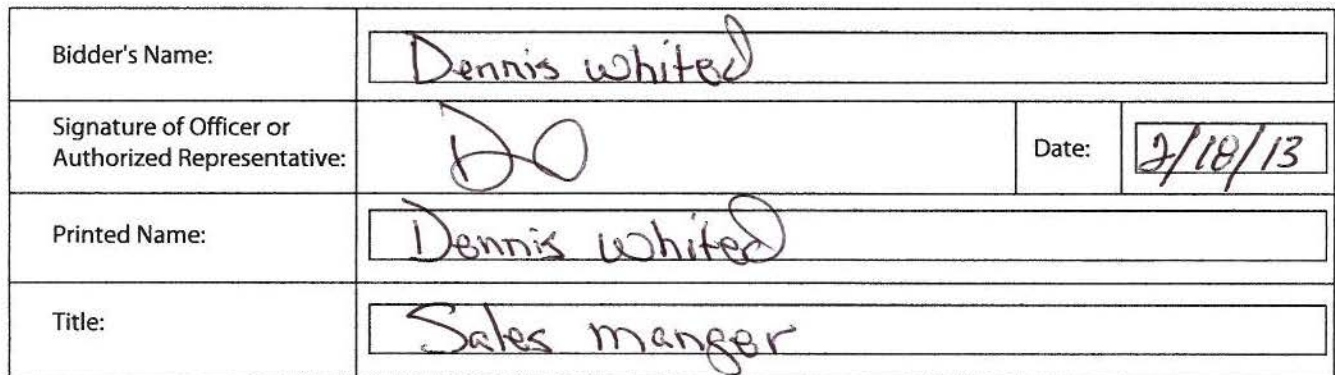 Bidder's Name: Dennis Whited
Signature of Officer or
Authorized Representative:
Date: 2/18/13
Printed Name: Dennis Whited
Title: Sales manger